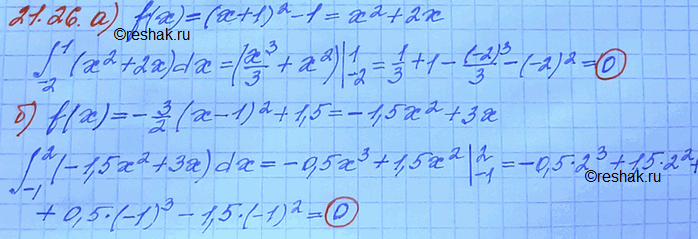 21.26. а) f(x)=(x+1)²-1=x²+2x
©reshak.ru
∫₋₂¹(x²+2x)dx=(x³/3+x²)|¹₋₂=1/3+1-(-2)³/3-(-2)²=0
б) f(x)=-3/2(x-1)²+1,5=-1,5x²+3x
∫₋₁²(-1,5x²+3x)dx=-0,5x³+1,5x²|²₋₁=-0,5·2³+1,5·2²+
©reshak.ru
+0,5·(-1)³-1,5·(-1)²=0